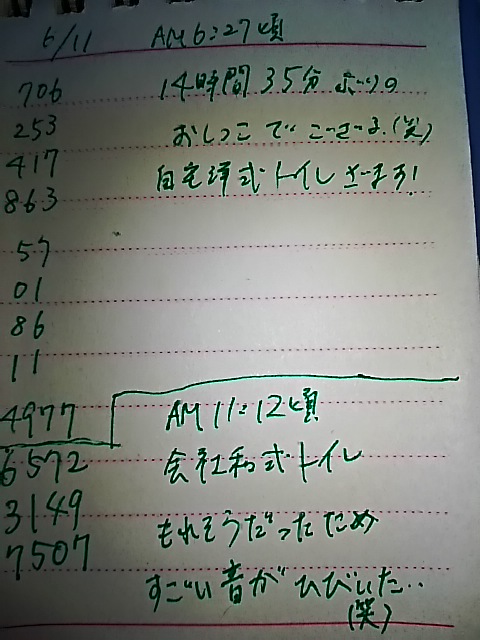 6/11 AM6:27頃
706 14時間35分ぶりの
253 おしっこでござる.(笑)
417 自宅洋式トイレざます!
863
57
01
86
11
4977 AM11:12頃
6572 会社和式トイレ
3149 もれそうだったため
7507 すごい音がひびいた‥
(笑)